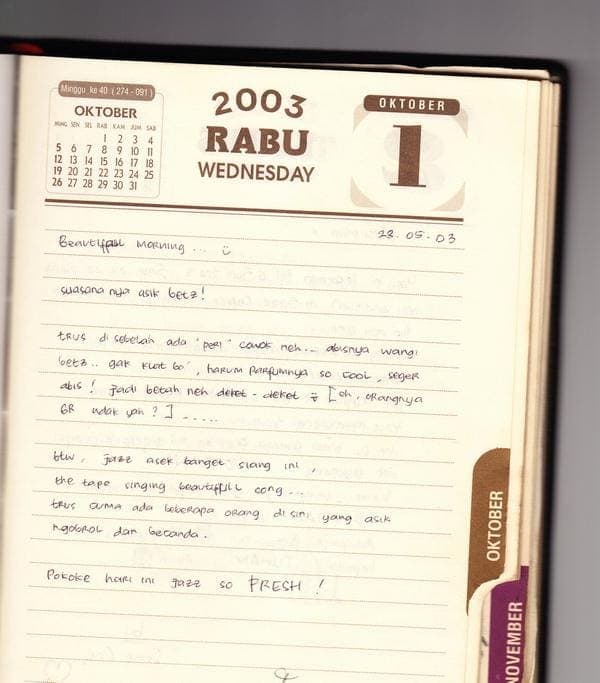 Minggu ke 40 ( 274 - 091 )
OKTOBER
MING SEN SEL RAB KAM JUM SAB
1 2 3 4
5 6 7 8 9 10 11
12 13 14 15 16 17 18
19 20 21 22 23 24 25
26 27 28 29 30 31
2003
RABU
WEDNESDAY
OKTOBER
1
28.05.03
Beautifull morning...
suasana nya asik betz!
trus di sebelah ada "peri" cowok neh... abisnya wangi
betz.. gak kuat bo', harum parfumnya so cool, seger
abis! jadi betah neh deket-deket [eh, orangnya
GR ndak yah?].....
btw, jazz asek banget siang ini,
the tape singing beautifull cong...
trus cuma ada beberapa orang di sini yang asik
ngobrol dan becanda.
Pokoke hari ini jazz so FRESH!
OKTOBER
NOVEMBER